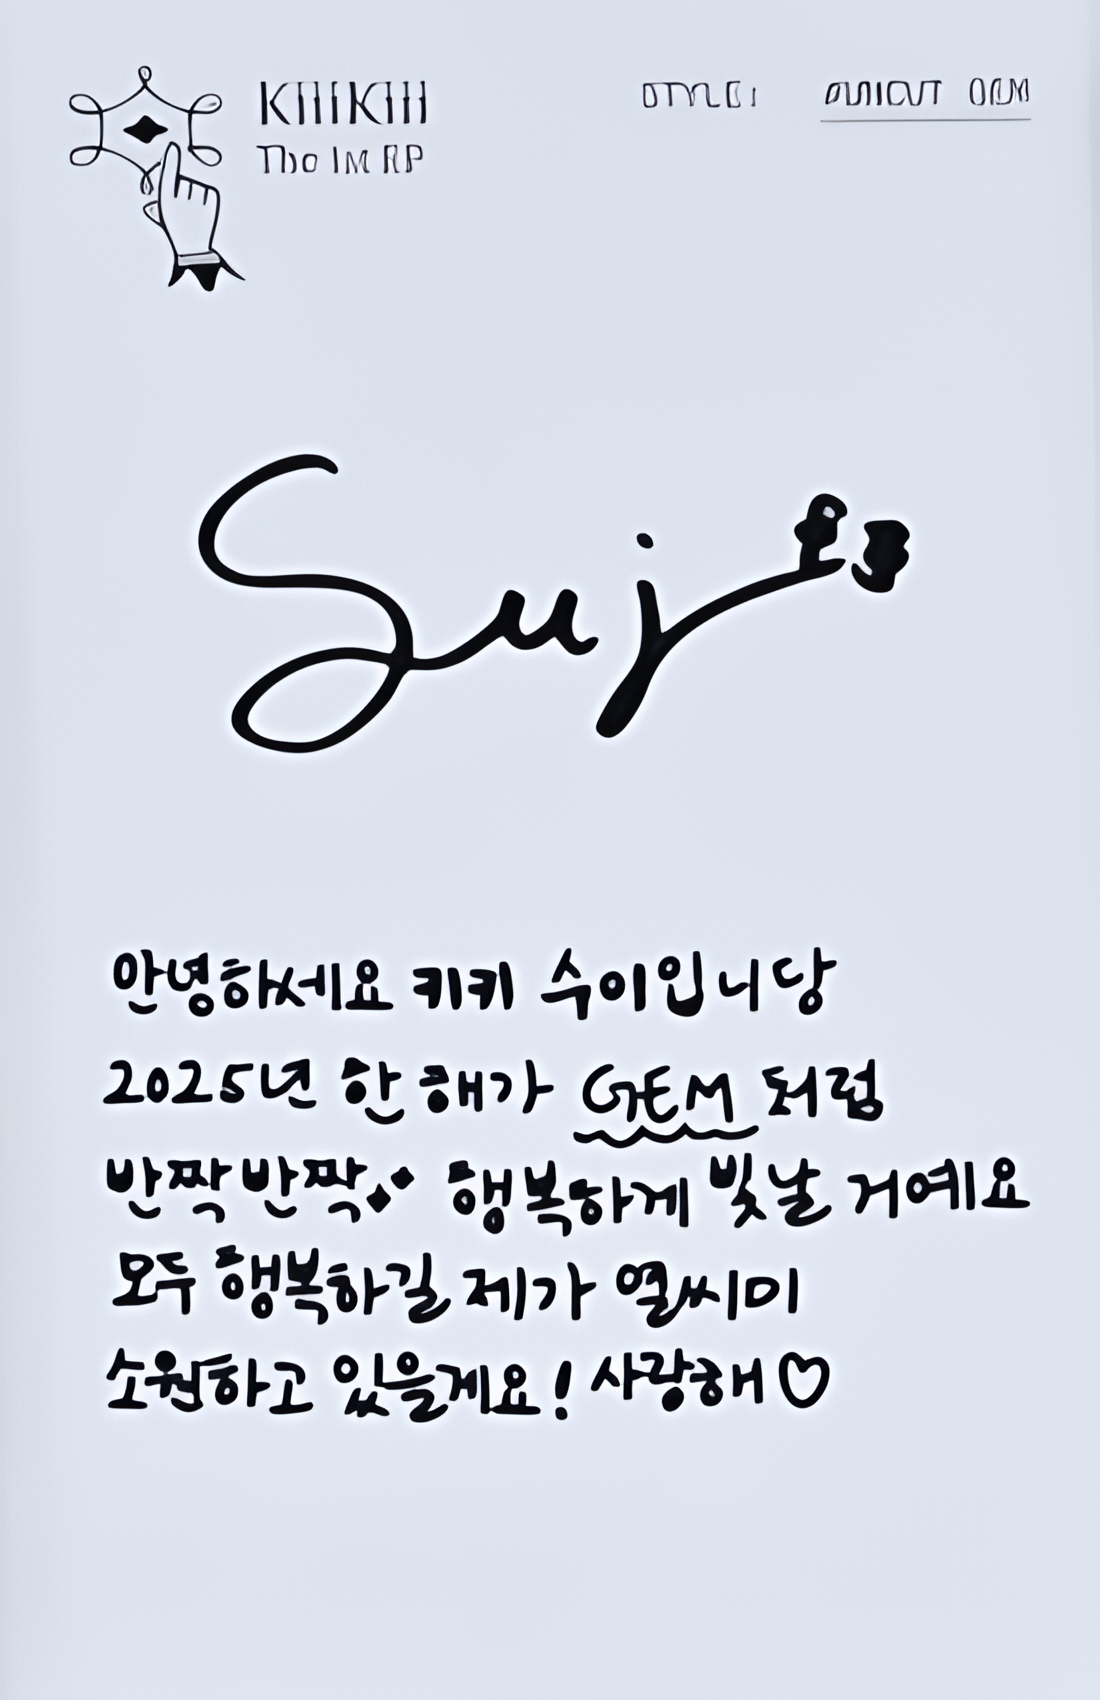 KiiiKiii
STYLE:
안녕하세요 키키 수이입니당
2025년 한 해가 GEM 처럼
반짝반짝 행복하게 빛날 거예요
모두 행복하길 제가 열씨미
소원하고 있을게요! 사랑해♡